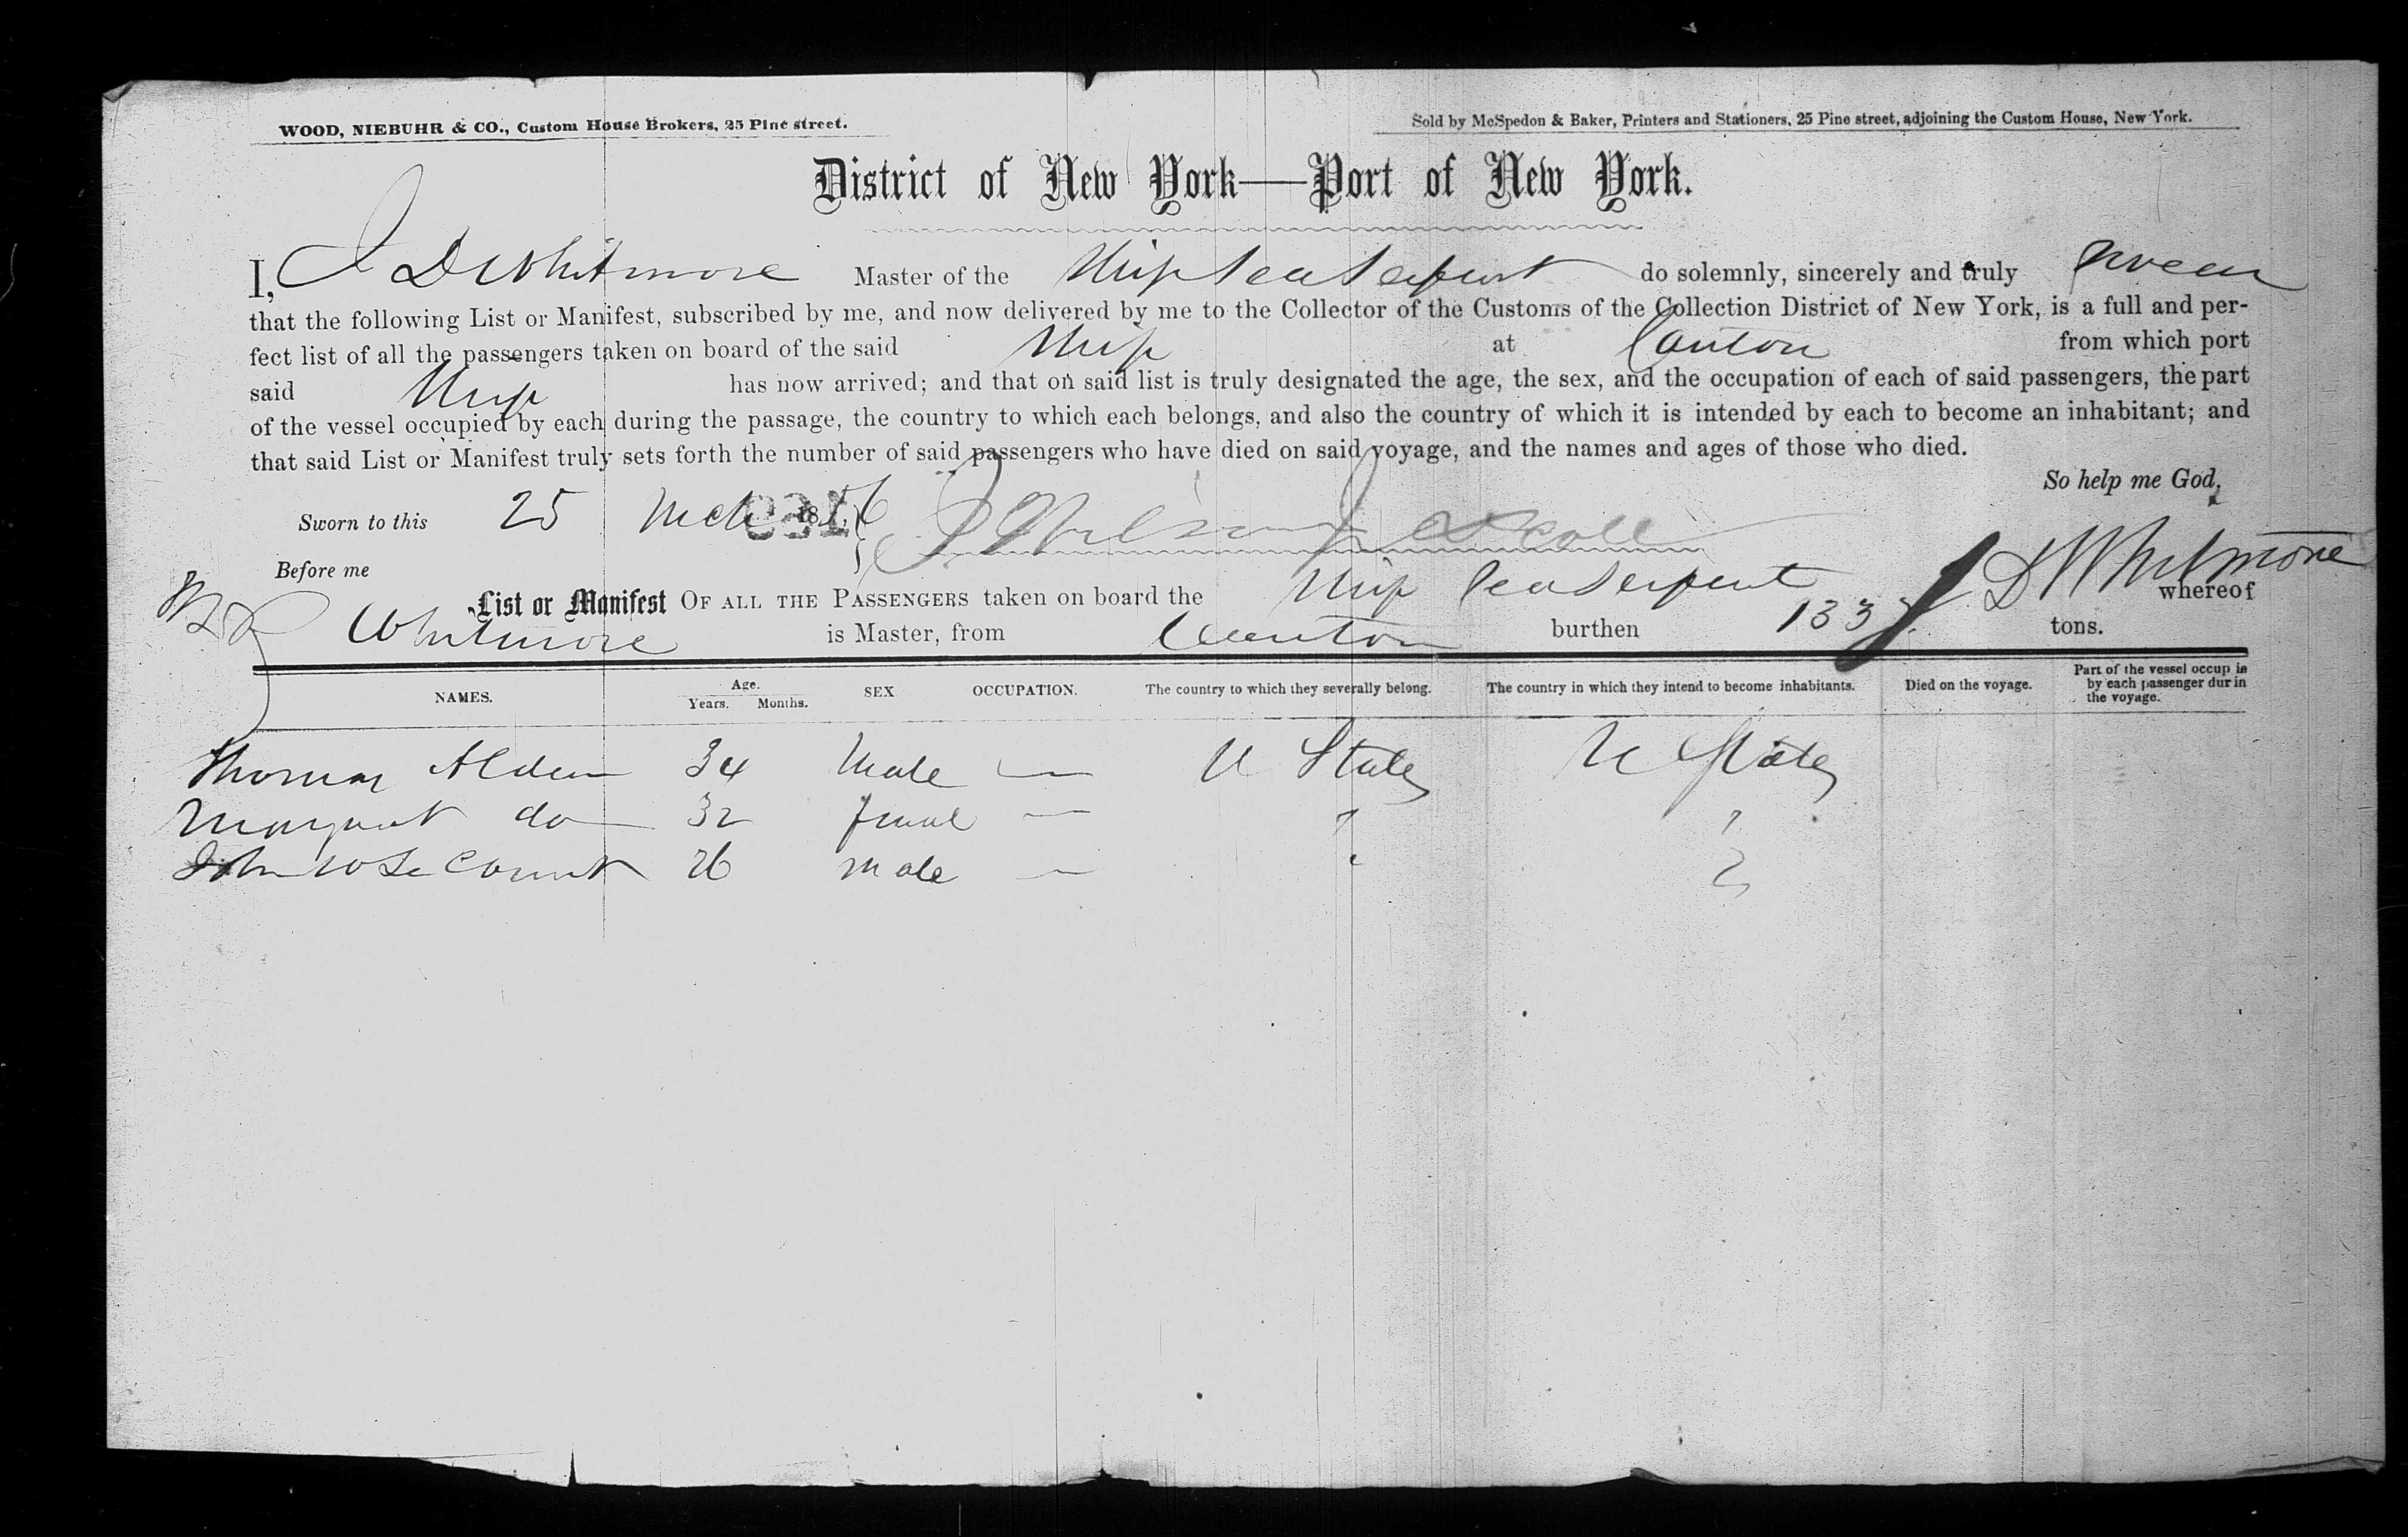 WOOD, NIEBUHR & CO., Custom House Brokers, 25 Pine street.
Sold by McSpedon & Baker, Printers and Stationers, 25 Pine street, adjoining the Custom House, New York.
District of New York—Port of New York.
I, J D Whitmore Master of the Ship Sea Serpent do solemnly, sincerely and truly swear
that the following List or Manifest, subscribed by me, and now delivered by me to the Collector of the Customs of the Collection District of New York, is a full and per-
fect list of all the passengers taken on board of the said Ship at Canton from which port
said Ship has now arrived; and that on said list is truly designated the age, the sex, and the occupation of each of said passengers, the part
of the vessel occupied by each during the passage, the country to which each belongs, and also the country of which it is intended by each to become an inhabitant; and
that said List or Manifest truly sets forth the number of said passengers who have died on said voyage, and the names and ages of those who died.
So help me God.
Sworn to this 25 Mch 1856
J D Whitmore
Before me
List or Manifest OF ALL THE PASSENGERS taken on board the Ship Sea Serpent whereof
Whitmore is Master, from Canton burthen 133 tons.
NAMES. Age. Years. Months. SEX OCCUPATION. The country to which they severally belong. The country in which they intend to become inhabitants. Died on the voyage. Part of the vessel occup in by each passenger dur in the voyage.
Thomas Alden 34 Male — U States U States
Margaret do 32 female — " "
John W Le Count 26 male — " "